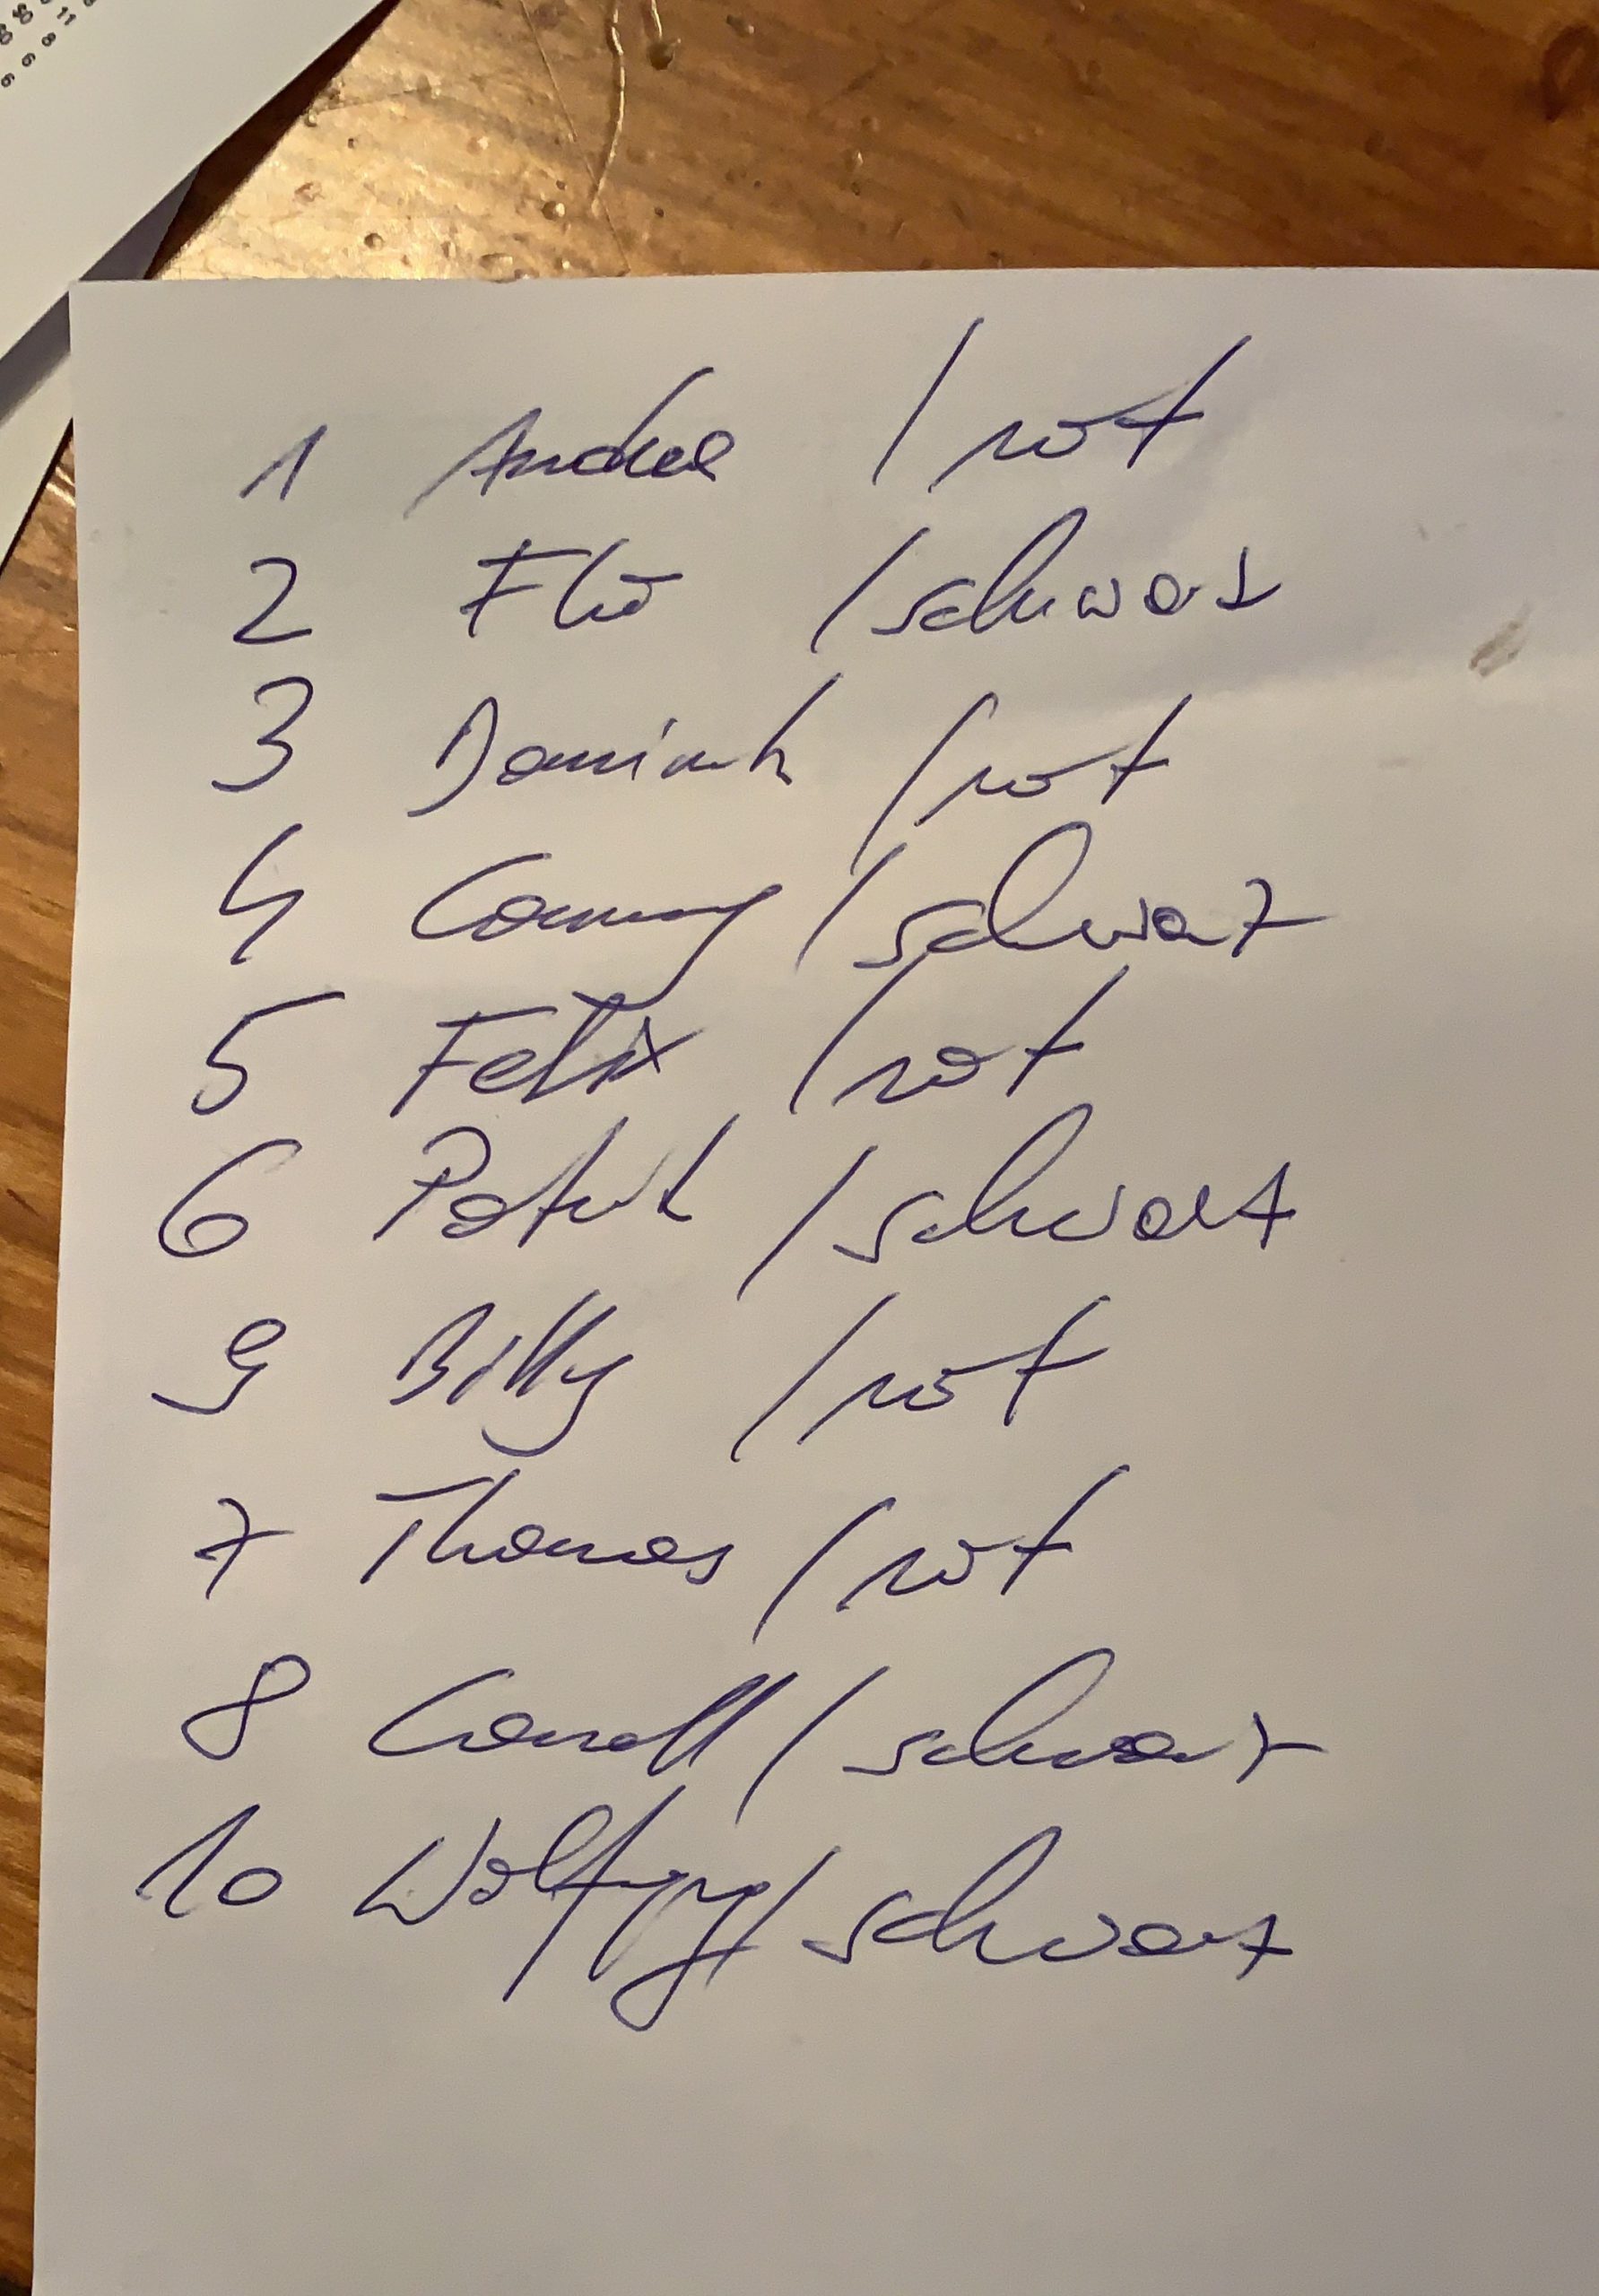 1 Andrea / rot
2 Flo / schwarz
3 Dominik / rot
4 Conny / schwarz
5 Felix / rot
6 Patrik / schwarz
9 Billy / rot
7 Thomas / rot
8 / schwarz
10 Wolfgang / schwarz